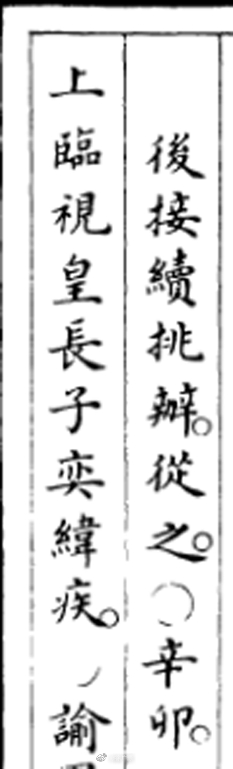 後接續挑辦。從之。○辛卯。
上臨視皇長子奕緯疾。○諭